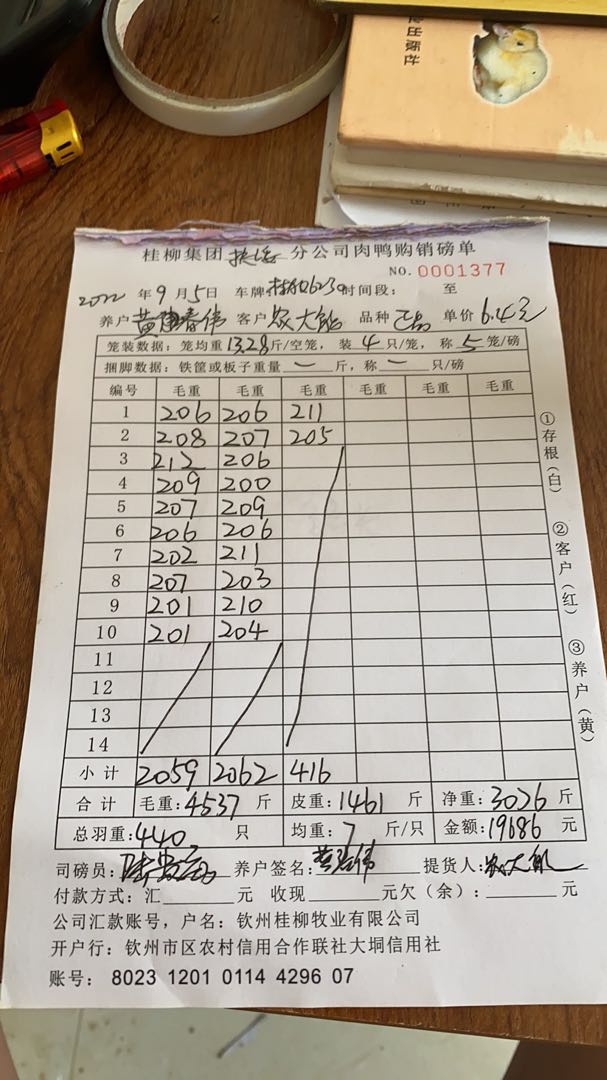 出版社
桂柳集团 分公司肉鸭购销磅单
NO.0001377
2022年9月5日 车牌: 时间段: 至
养户 黄 春伟 客户 农大能 品种 正品 单价 6.4元
笼装数据:笼均重13.28斤/空笼,装4只/笼,称5笼/磅
捆脚数据:铁筐或板子重量 一 斤,称 一 只/磅
编号 毛重 毛重 毛重 毛重 毛重 毛重
1 206 206 211
2 208 207 205
3 212 206
4 209 200
5 207 209
6 206 206
7 202 211
8 207 203
9 201 210
10 201 204
11
12
13
14
小计 2059 2062 416
合计 毛重:4537斤 皮重:1461斤 净重:3026斤
总羽重:440只 均重:7斤/只 金额:19686元
司磅员: 养户签名: 提货人:农大能
付款方式:汇 元 收现 元欠(余): 元
公司汇款账号,户名:钦州桂柳牧业有限公司
开户行:钦州市区农村信用合作联社大垌信用社
账号: 8023 1201 0114 4296 07
①存根(白)
②客户(红)
③养户(黄)